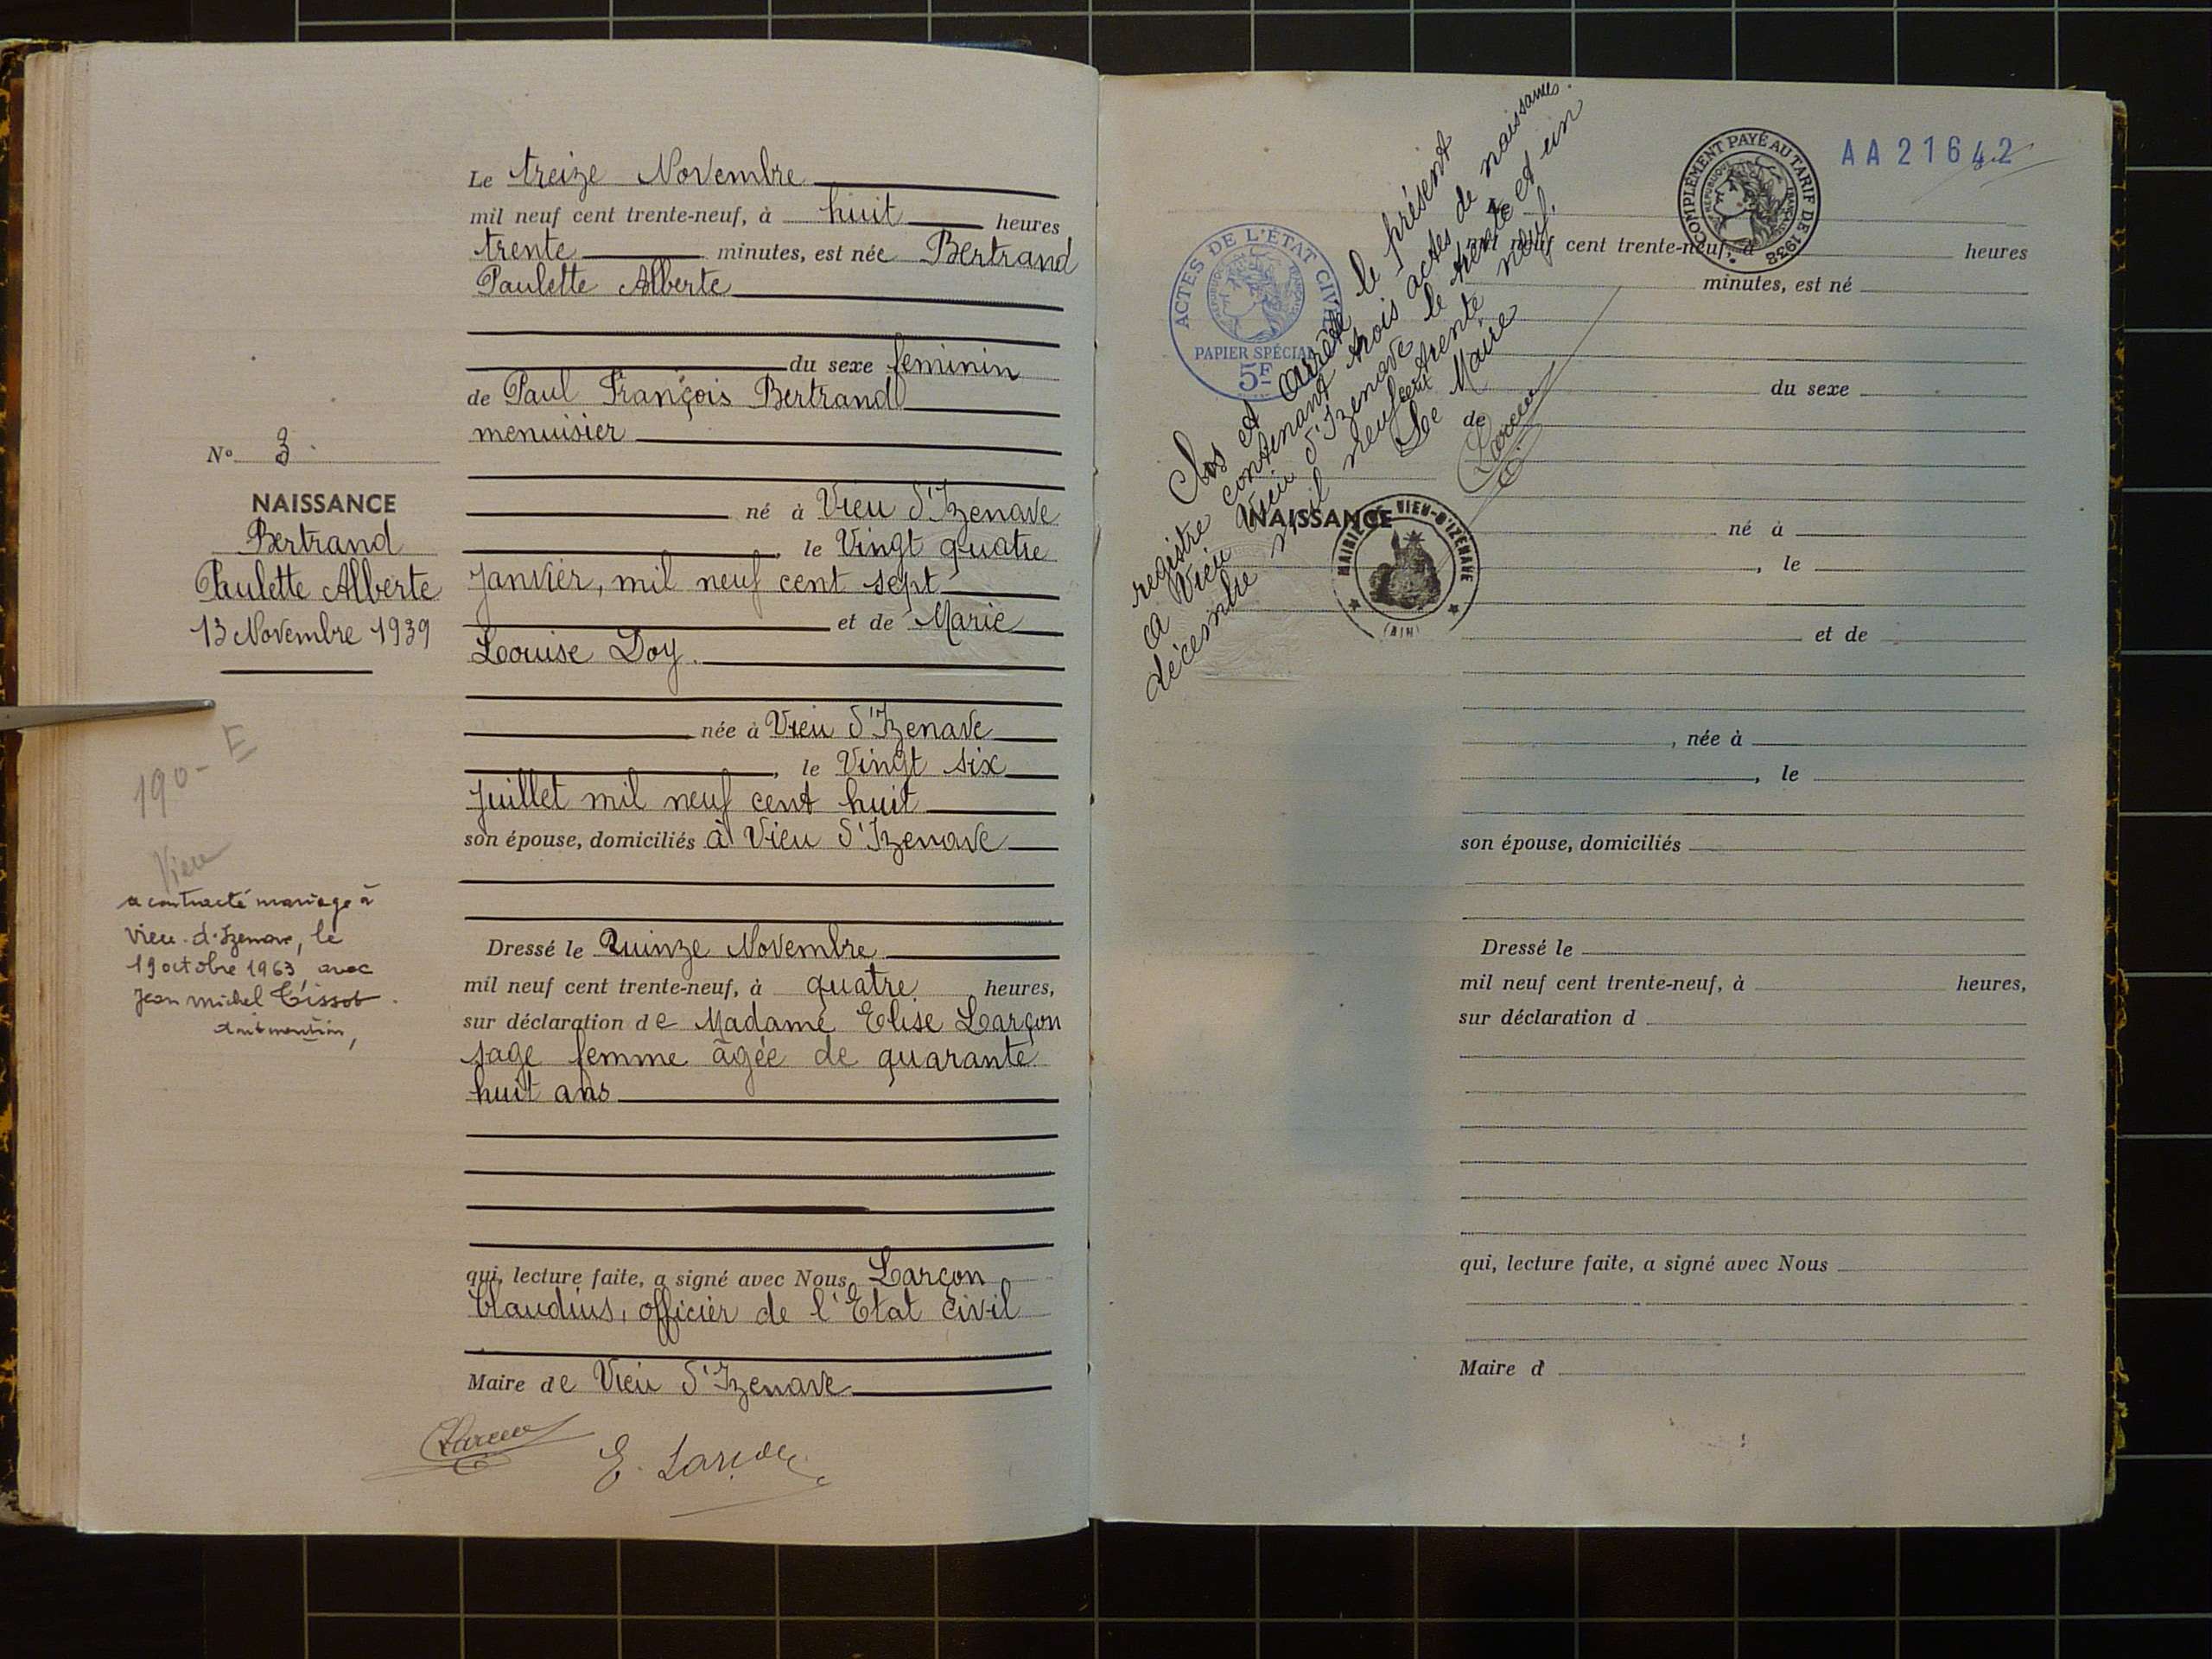 Le treize Novembre
mil neuf cent trente-neuf, à huit heures
trente minutes, est née Bertrand
Paulette Alberte
du sexe feminin
de Paul François Bertrand
menuisier
né à Vieu d'Izenave
, le Vingt quatre
Janvier, mil neuf cent sept
et de Marie
Louise Doy.
née à Vieu d'Izenave
, le Vingt six
Juillet mil neuf cent huit
son épouse, domiciliés à Vieu d'Izenave
Dressé le Quinze Novembre
mil neuf cent trente-neuf, à quatre heures,
sur déclaration de Madame Elise Larçon
sage femme âgée de quarante
huit ans
qui, lecture faite, a signé avec Nous Larçon
Claudius, officier de l'Etat Civil
Maire de Vieu d'Izenave
E. Larçon
N° 3.
NAISSANCE
Bertrand
Paulette Alberte
13 Novembre 1939
190- E
a contracté mariage à
Vieu-d'Izenave, le
19 octobre 1963 avec
Jean Michel Tissot.
dont mention,
AA 21642
COMPLEMENT PAYÉ AU TARIF DE 1938
REPUBLIQUE FRANÇAISE
ACTES DE L'ÉTAT CIVIL
REPUBLIQUE FRANÇAISE
PAPIER SPÉCIAL
5F
Clos et arrêté le présent
registre contenant trois actes de naissances.
à Vieu d'Izenave le trente et un
décembre mil neuf cent trente neuf.
Le Maire
MAIRIE DE VIEU-D'IZENAVE
(AIN)
Le
mil neuf cent trente-neuf, à heures
minutes, est né
du sexe
de
NAISSANCE
né à
, le
et de
, née à
, le
son épouse, domiciliés
Dressé le
mil neuf cent trente-neuf, à heures,
sur déclaration d
qui, lecture faite, a signé avec Nous
Maire d